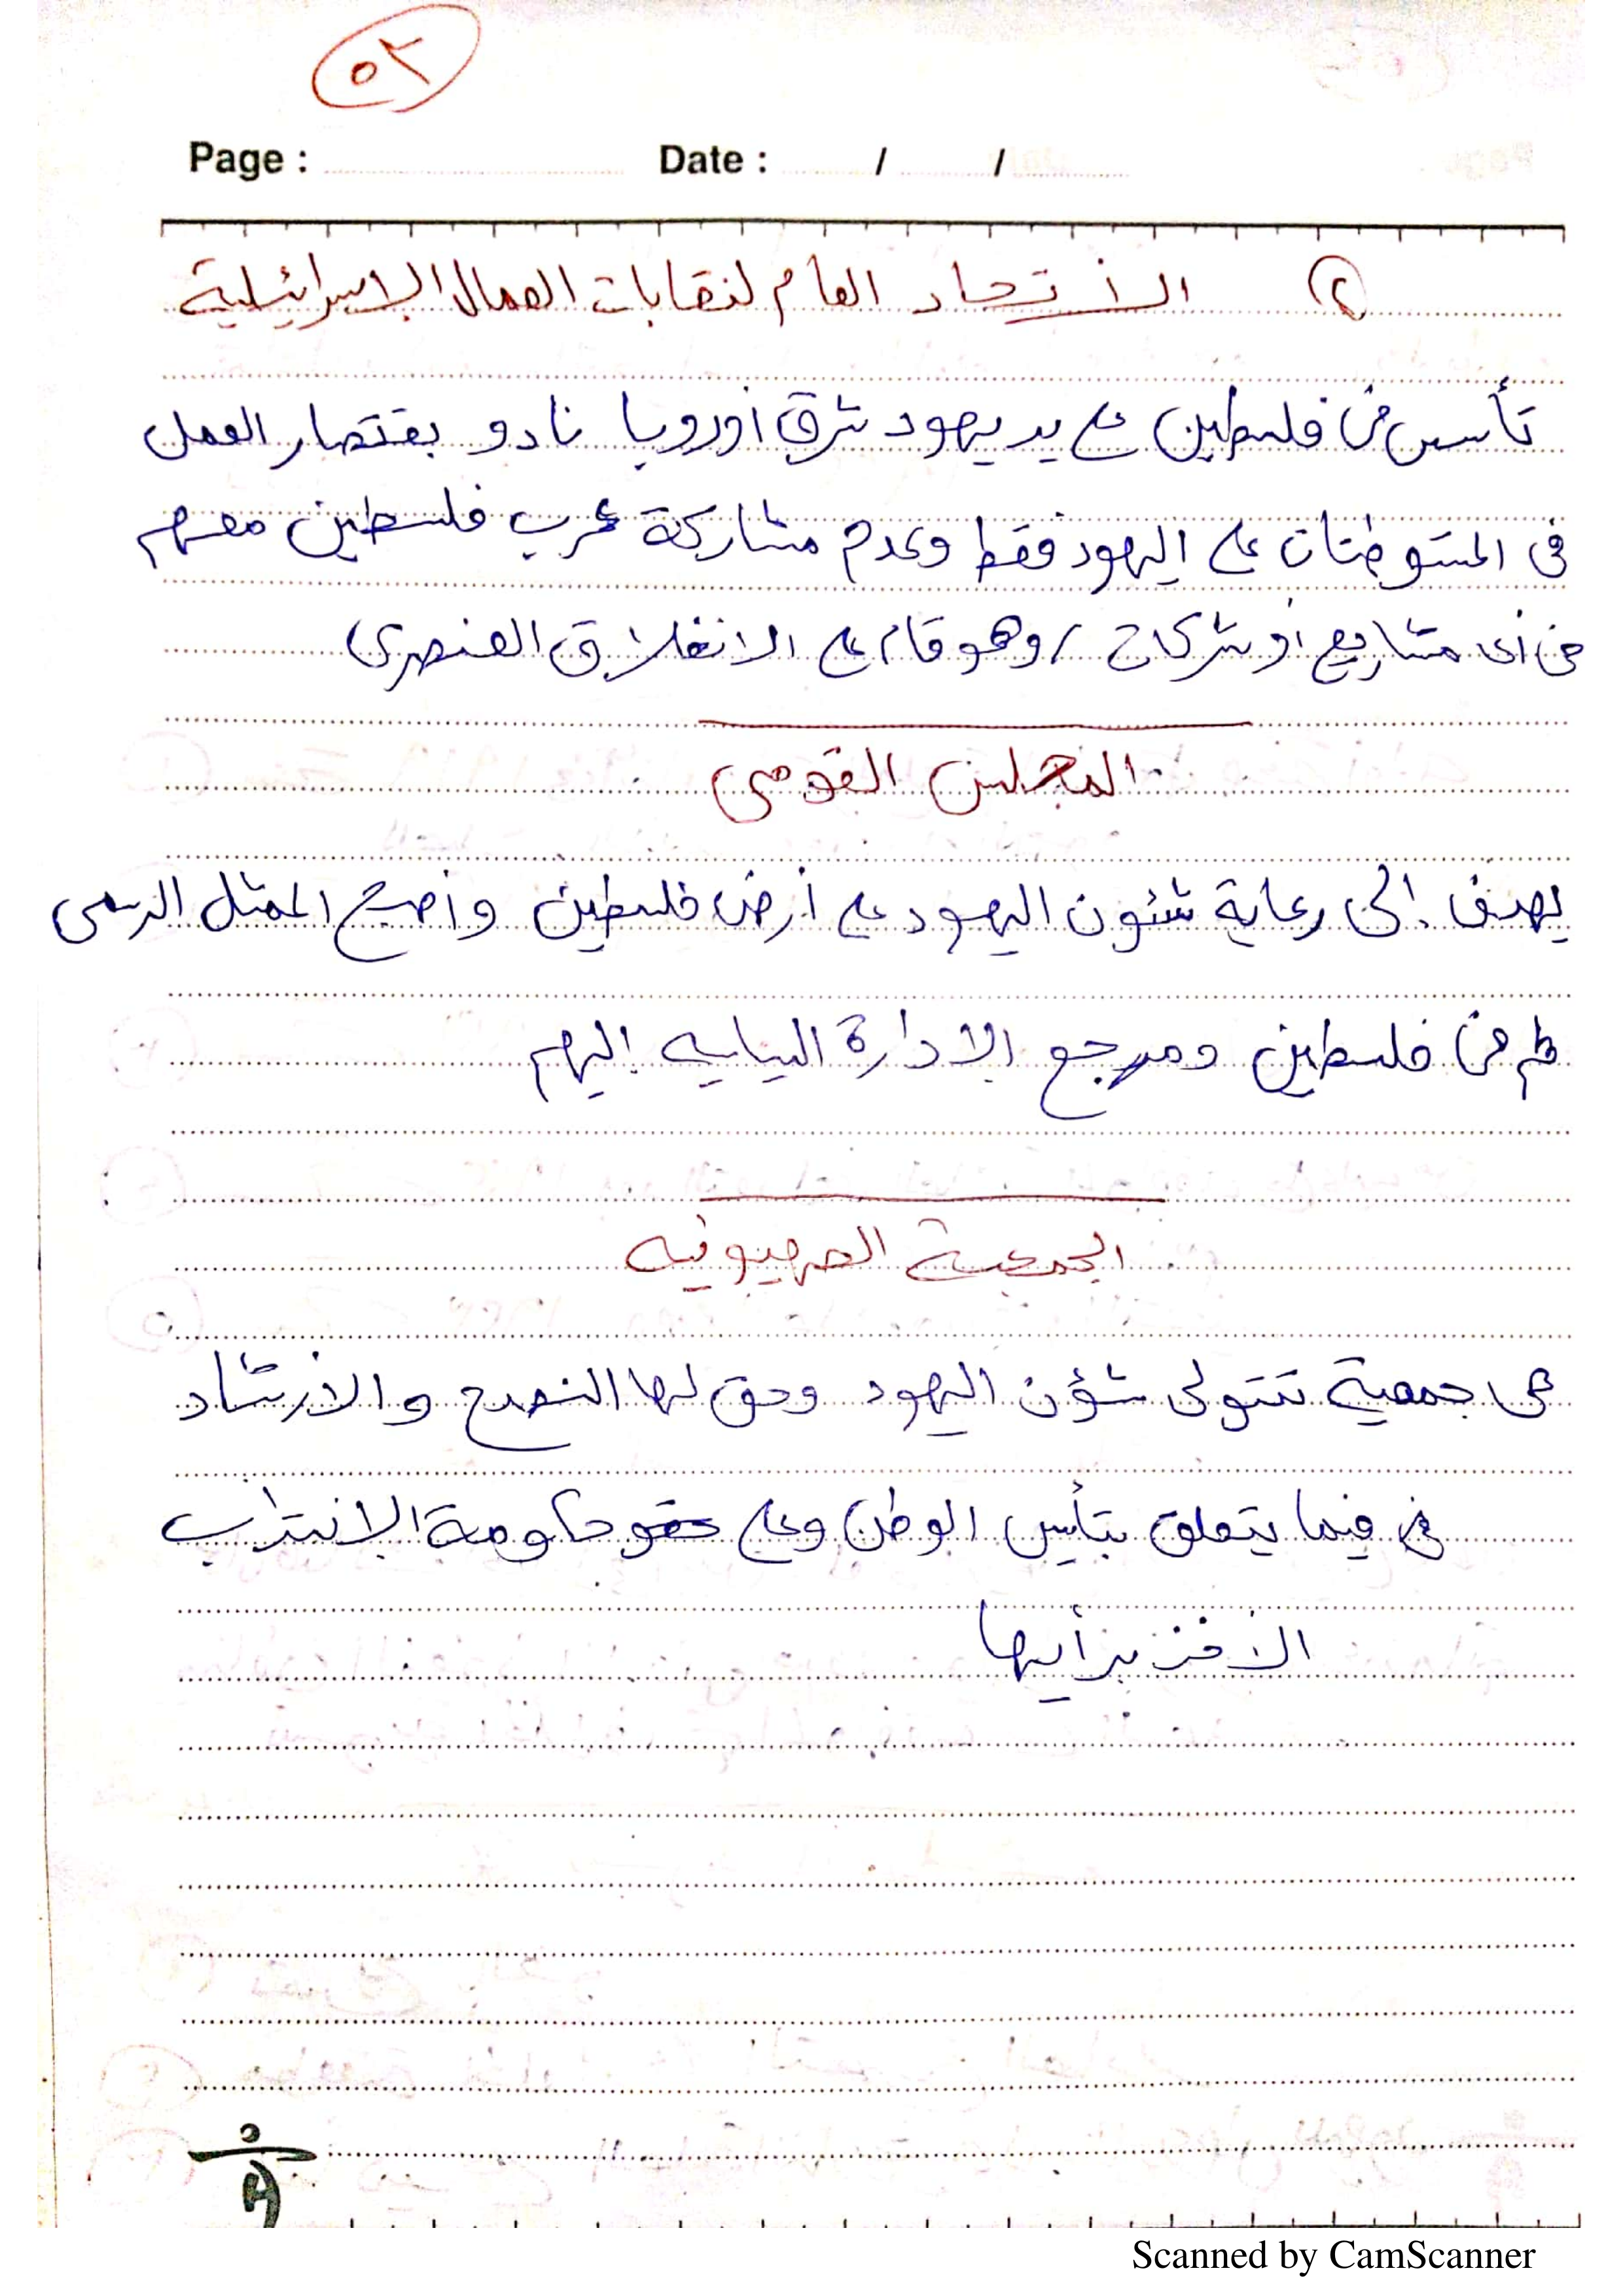 ٥٢
Page : Date : / /
٢ الأتحاد العام لنقابات العمال الإسرائيلية
تأسس فى فلسطين على يد يهود شرق أوروبا نادو بقتصار العمل
فى المستوطنات على اليهود فقط وعدم مشاركة عرب فلسطين معهم
فى أى مشاريع أو شركات / وهو قام على الانغلاق العنصرى
المجلس القومى
يهدف إلى رعاية شئون اليهود على أرض فلسطين وأصبح الممثل الرسمى
لهم فى فلسطين ومرجع الإدارة اليابيه إليهم
الجمعية الصهيونيه
هى جمعية تتولى شؤن اليهود وحق لها النصح والأرشاد
فى فيما يتعلق بتأيس الوطن وعلى حكومة الإنتداب
الأخذ برأيها
Scanned by CamScanner